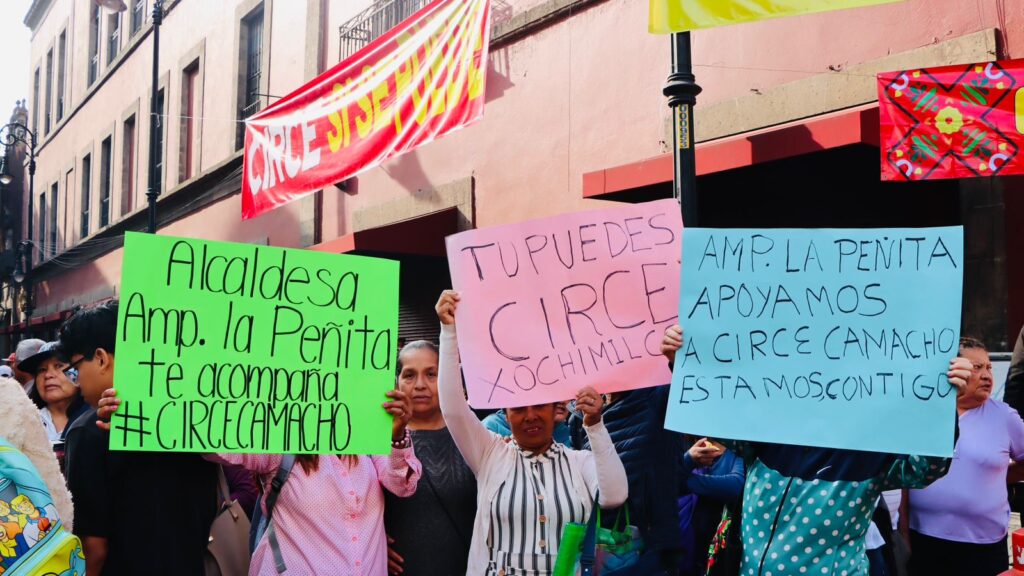 CIRCE SI SE PUEDE
Alcaldesa
Amp. la Peñita
te acompaña
#CIRCECAMACHO
TU PUEDES
CIRCE
XOCHIMILCO
AMP. LA PEÑITA
APOYAMOS
A CIRCE CAMACHO
ESTAMOS CONTIGO